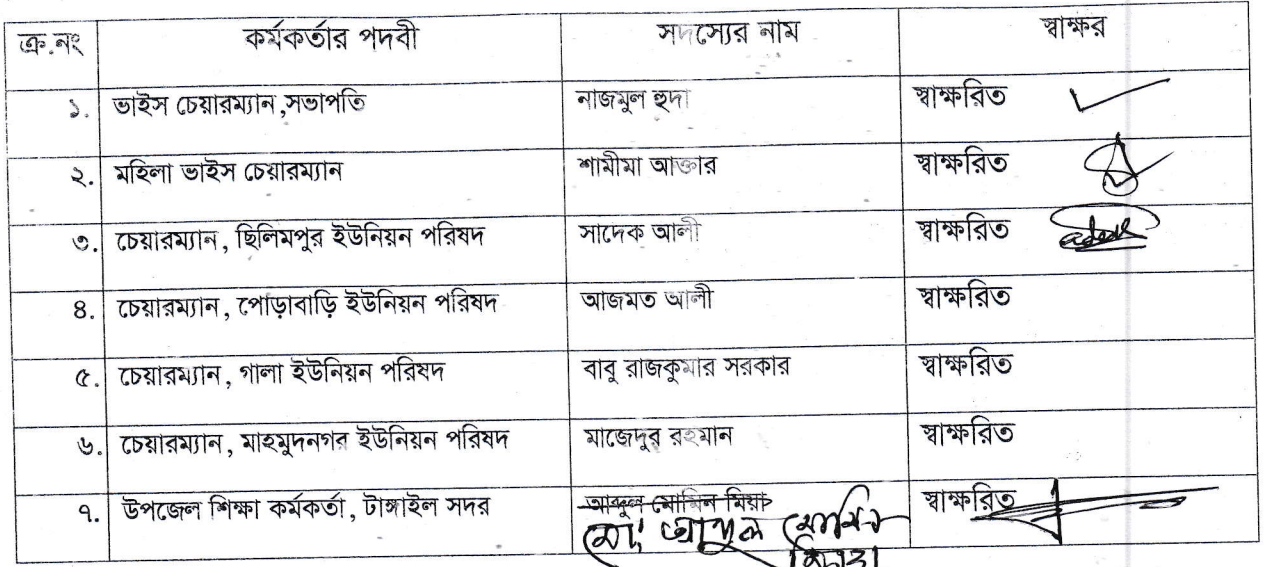 ক্র.নং কর্মকর্তার পদবী সদস্যের নাম স্বাক্ষর
১. ভাইস চেয়ারম্যান,সভাপতি নাজমুল হুদা স্বাক্ষরিত
২. মহিলা ভাইস চেয়ারম্যান শামীমা আক্তার স্বাক্ষরিত
৩. চেয়ারম্যান, ছিলিমপুর ইউনিয়ন পরিষদ সাদেক আলী স্বাক্ষরিত
৪. চেয়ারম্যান, পোড়াবাড়ি ইউনিয়ন পরিষদ আজমত আলী স্বাক্ষরিত
৫. চেয়ারম্যান, গালা ইউনিয়ন পরিষদ বাবু রাজকুমার সরকার স্বাক্ষরিত
৬. চেয়ারম্যান, মাহমুদনগর ইউনিয়ন পরিষদ মাজেদুর রহমান স্বাক্ষরিত
৭. উপজেল শিক্ষা কর্মকর্তা, টাঙ্গাইল সদর আব্দুল মোমিন মিয়া স্বাক্ষরিত
মোঃ আব্দুল মোমিন
মিয়া